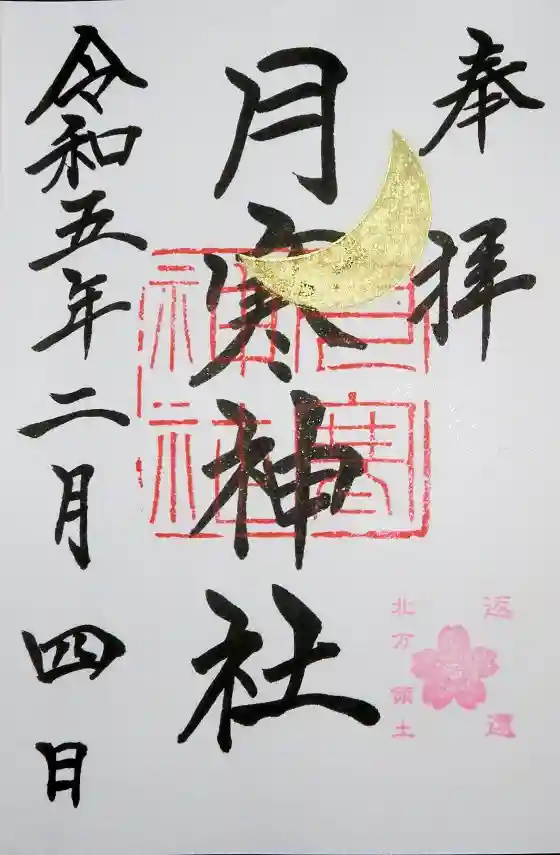 奉拝
月寒神社
月寒神社
返還
北方領土
令和五年二月四日